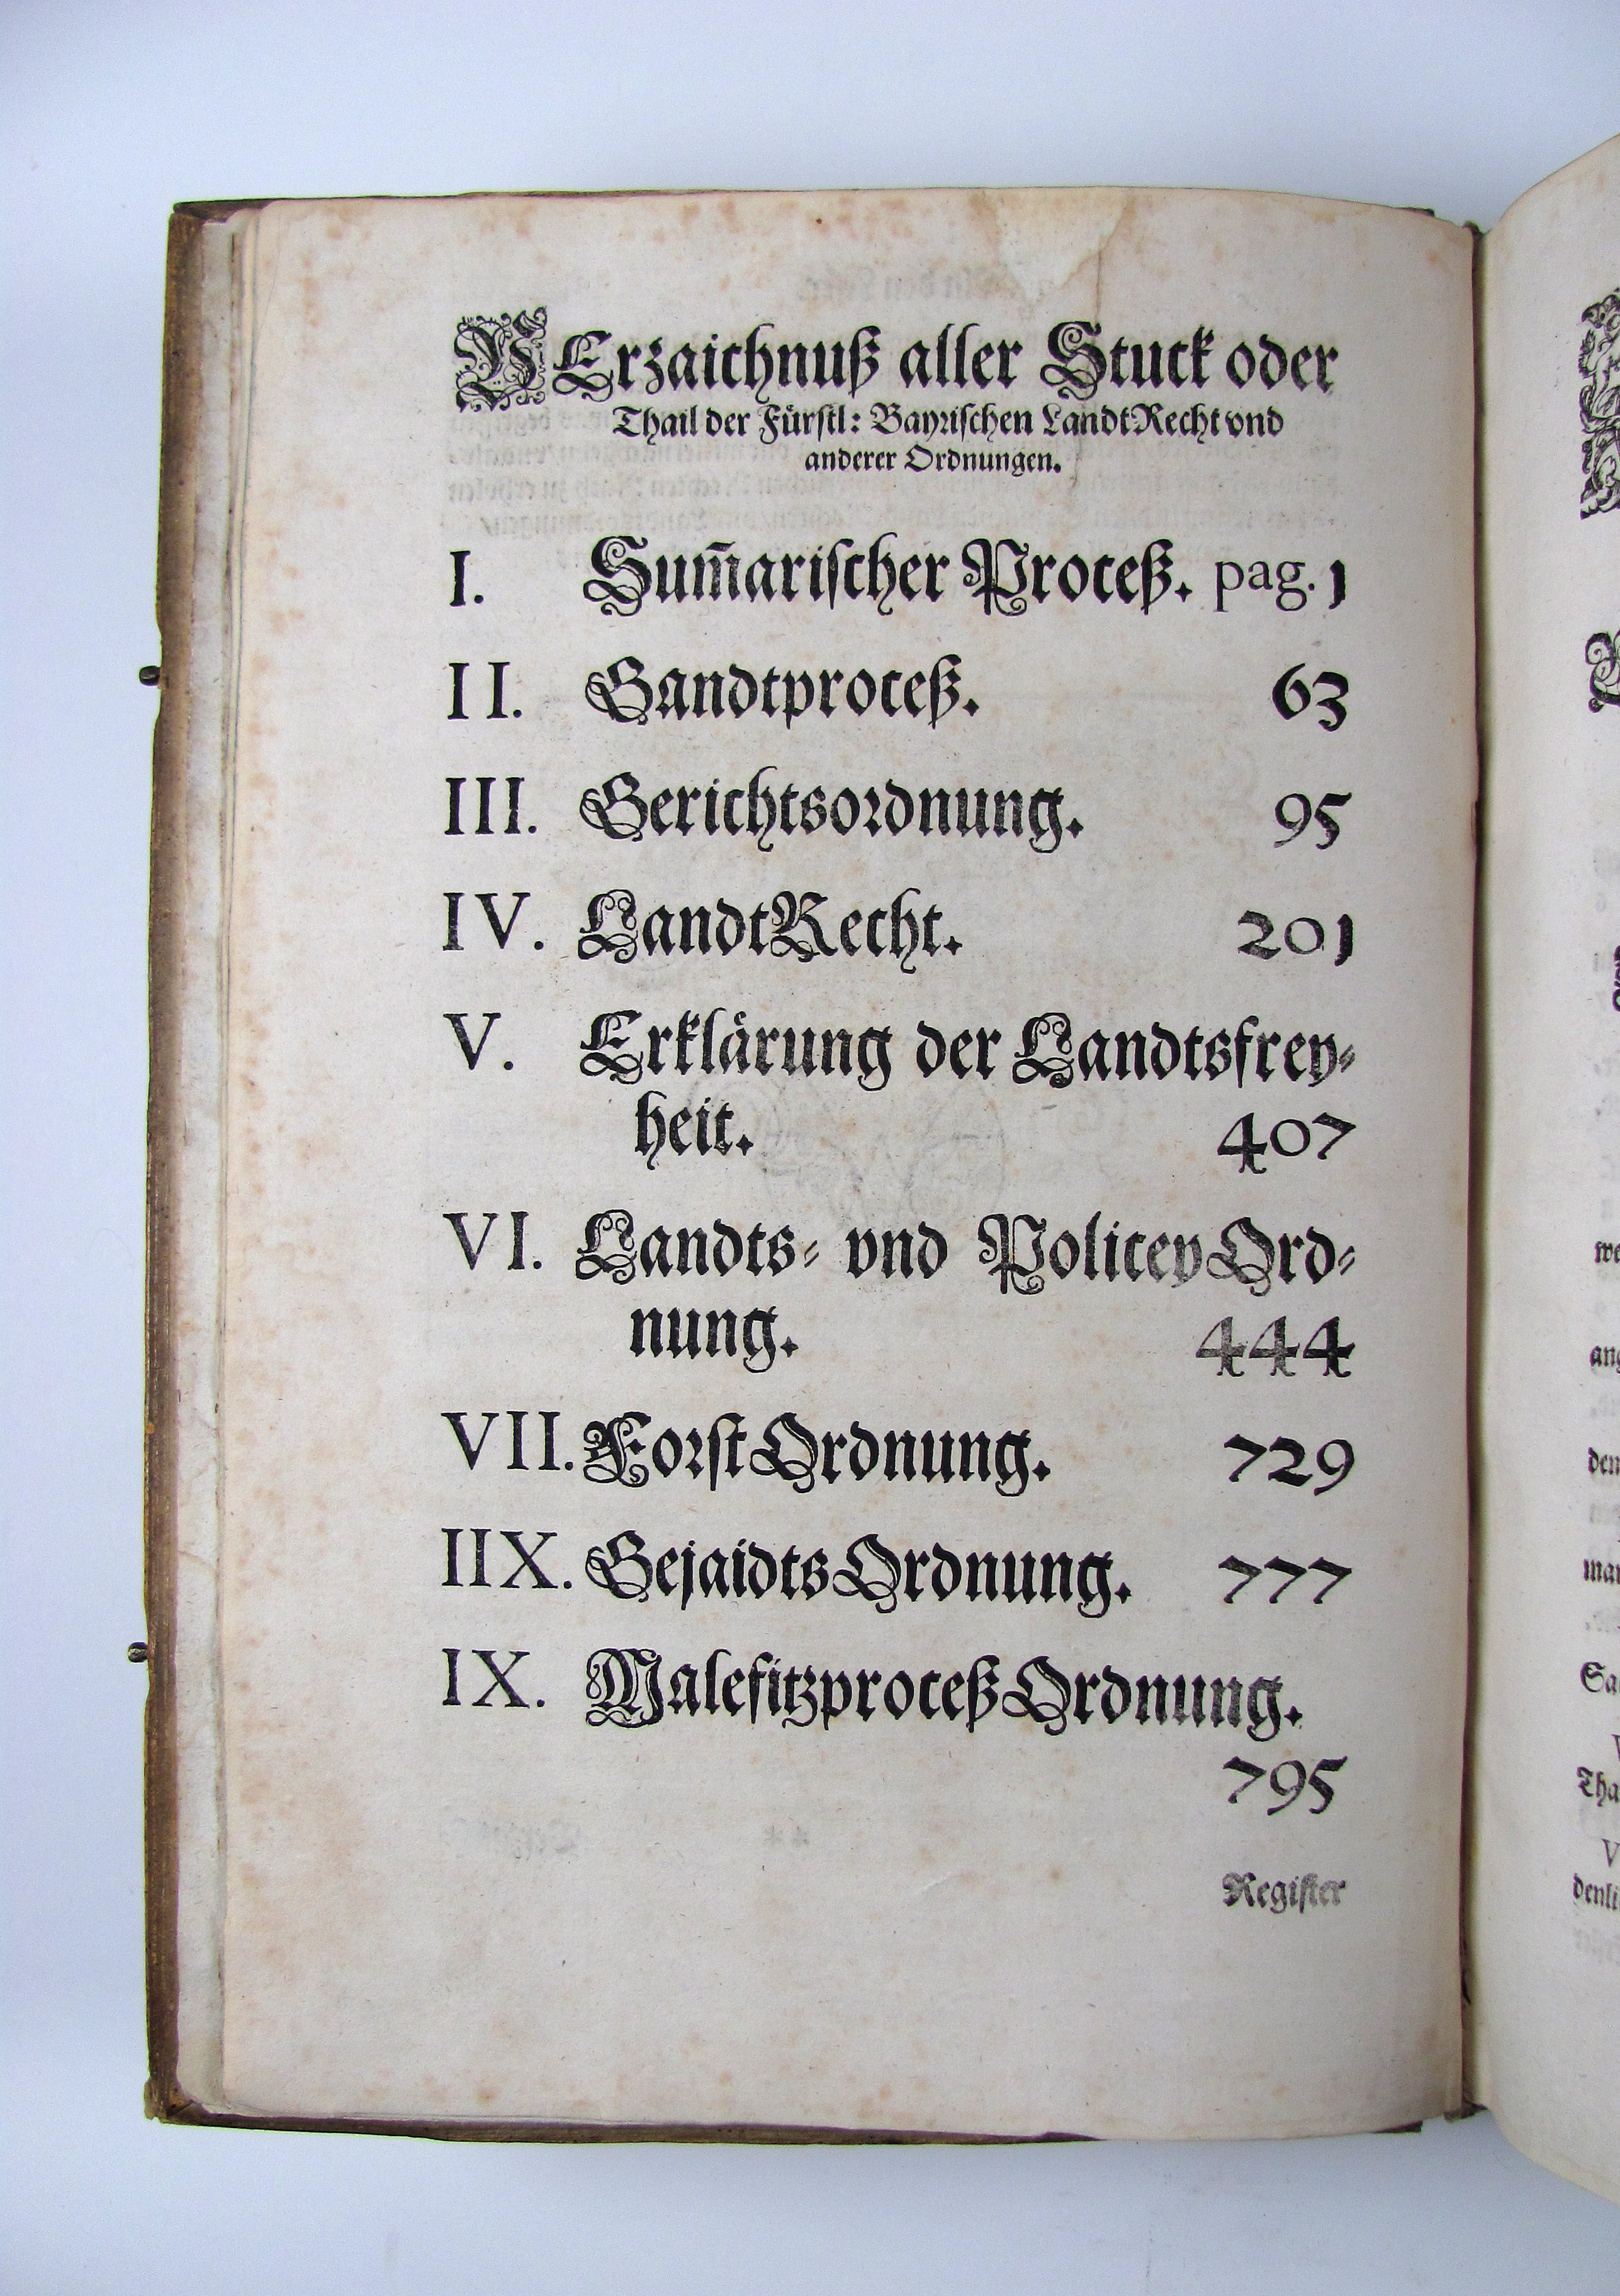 VErzaichnuß aller Stuck oder
Thail der Fürstl: Bayrischen LandtRecht vnd
anderer Ordnungen.
I. Sum̄arischer Proceß. pag. 1
II. Gandtproceß. 63
III. Gerichtsordnung. 95
IV. LandtRecht. 201
V. Erklärung der Landtsfrey⸗
heit. 407
VI. Landts⸗ vnd PoliceyOrd⸗
nung. 444
VII. ForstOrdnung. 729
IIX. GejaidtsOrdnung. 777
IX. MalefitzproceßOrdnung.
795
Register